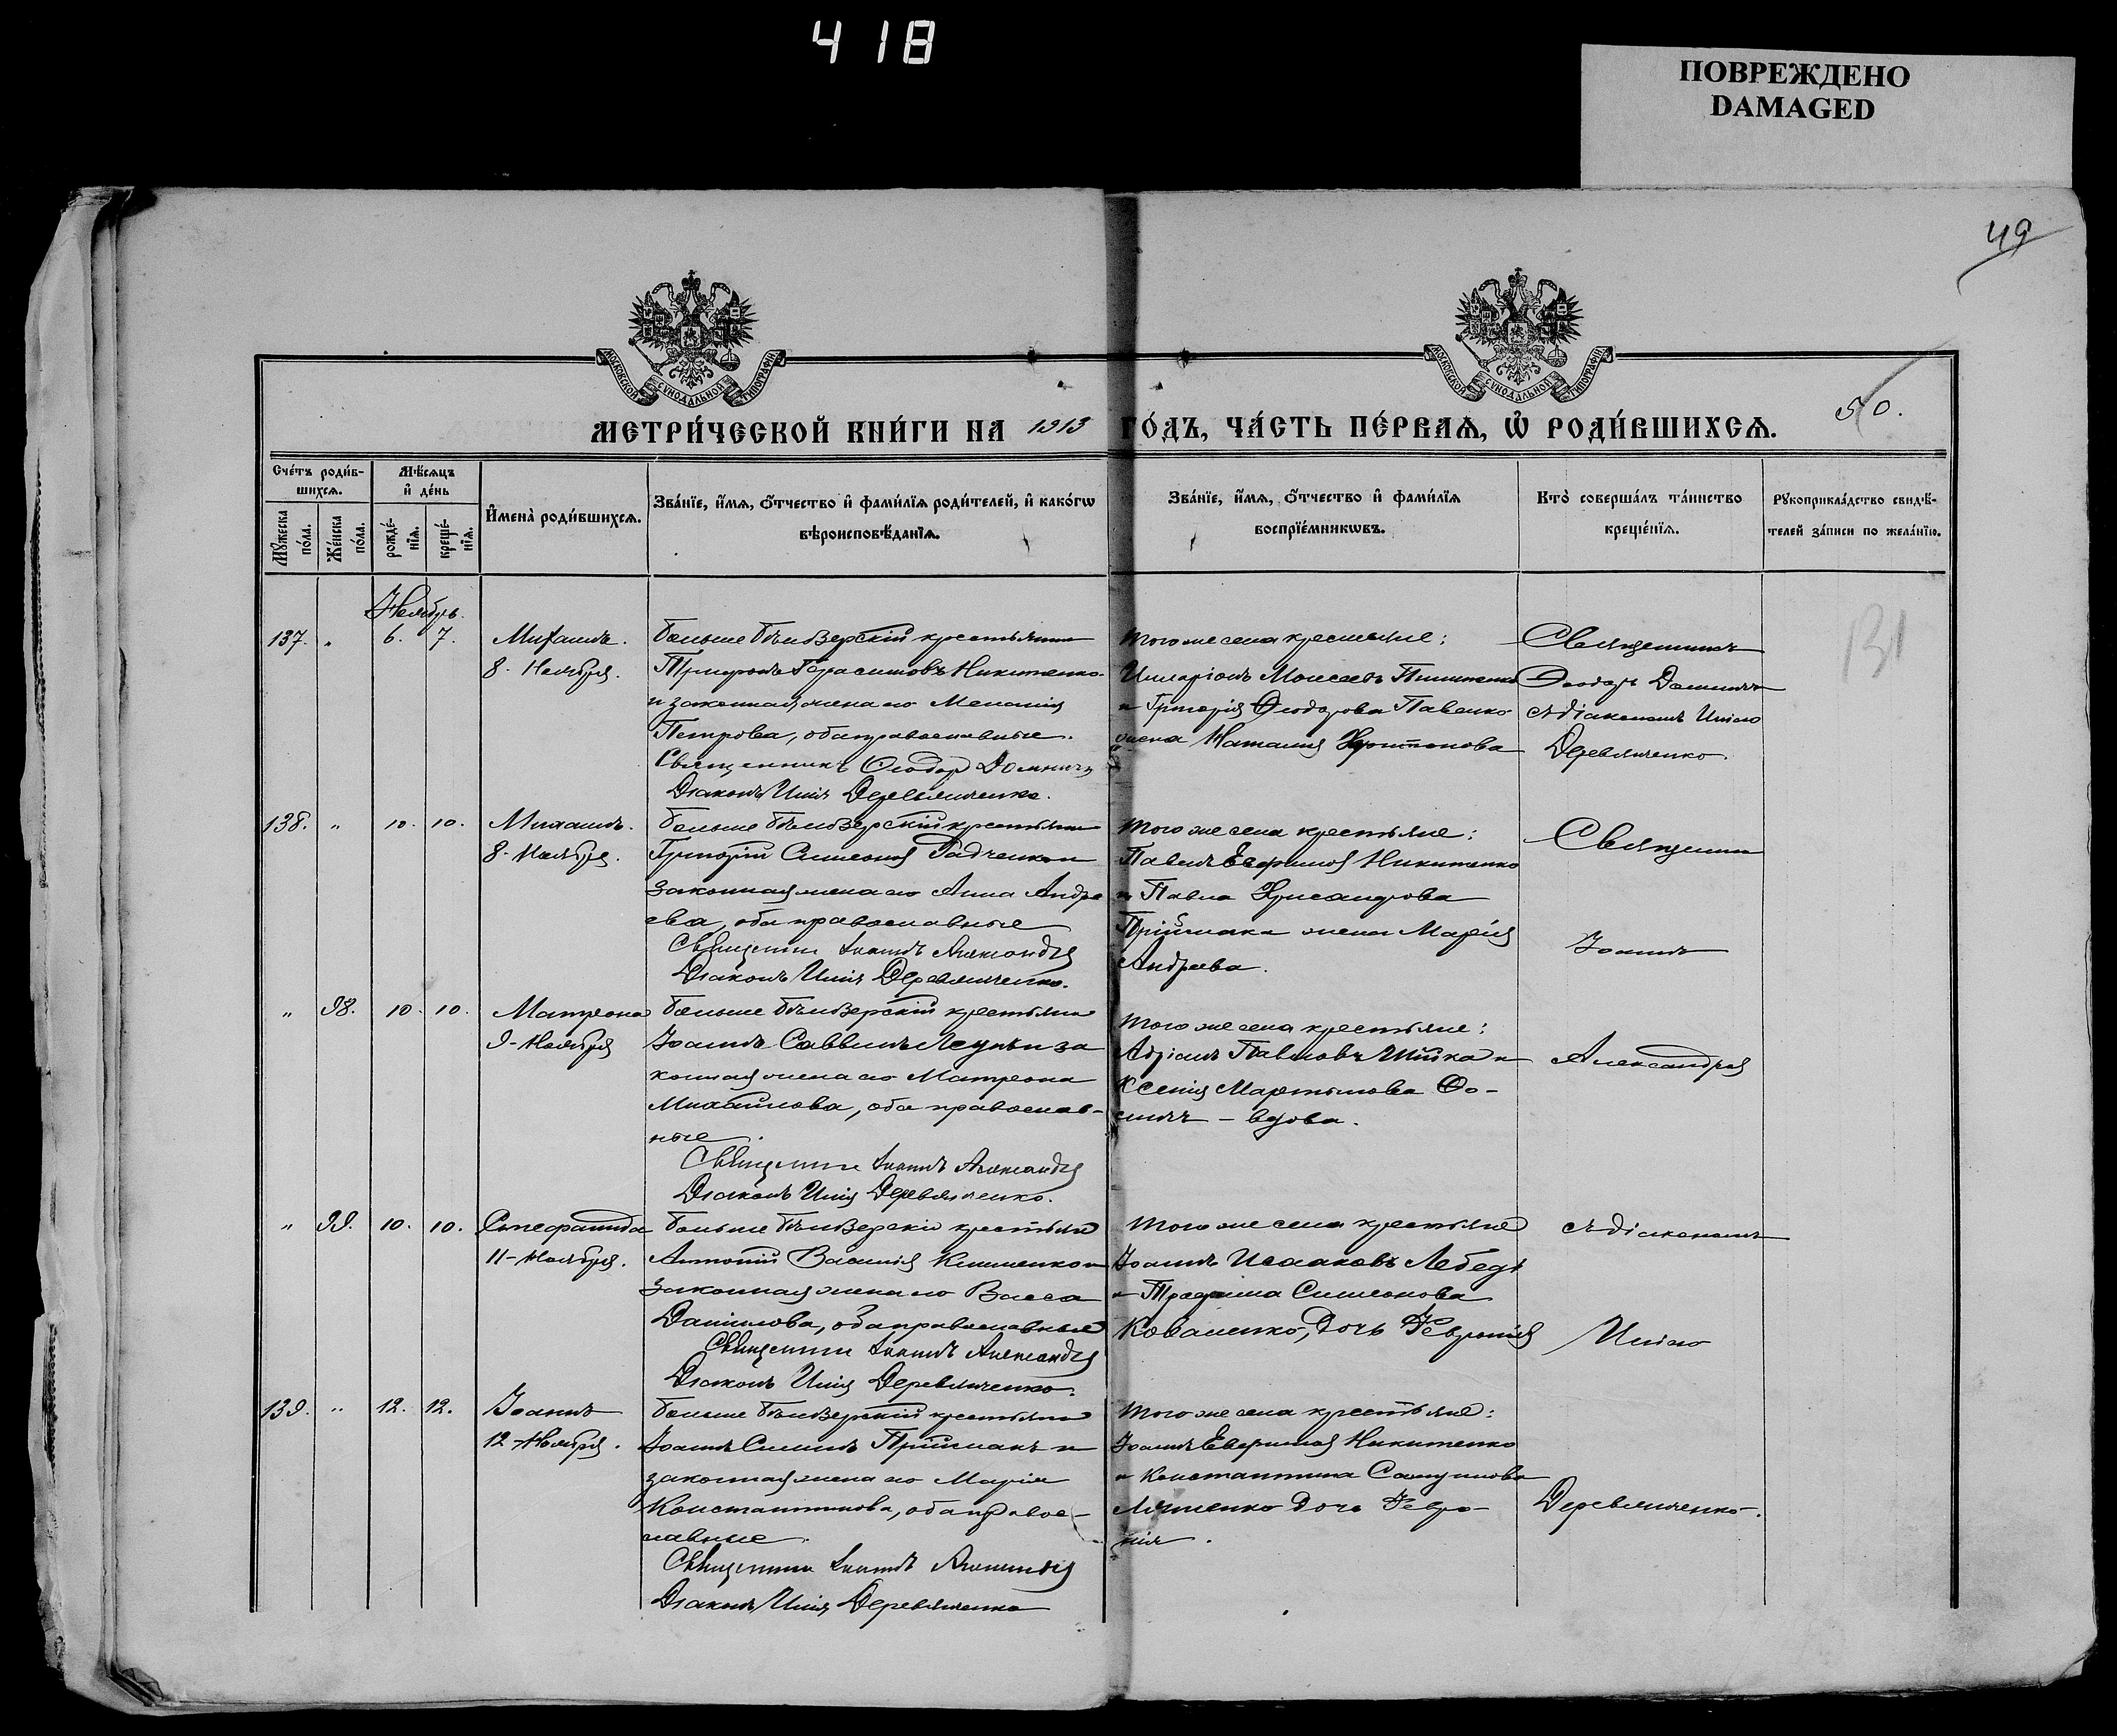 418
ПОВРЕЖДЕНО
DAMAGED
49
МОСКОВСКОЙ СѴНОДАЛЬНОЙ ТИПОГРАФІИ
МОСКОВСКОЙ СѴНОДАЛЬНОЙ ТИПОГРАФІИ
МЕТРИ́ЧЕСКОЙ КНИ́ГИ НА 1913 ГО́ДЪ, ЧА́СТЬ ПЕ́РВАѦ, Ѡ҆ РОДИ́ВШИХСѦ.
50.
Сче́тъ роди́в-
шихсѧ.
Мꙋ́жеска
по́ла.
Же́нска
по́ла.
Мѣ́сѧцъ
и҆ де́нь
рожде́-
нїѧ.
креще́-
нїѧ.
И҆мена̀ роди́вшихсѧ.
Зва́нїе, и҆́мѧ, ѻ҆́тчество и҆ фами́лїѧ роди́телей, и҆ како́гѡ
вѣроисповѣ́данїѧ.
Зва́нїе, и҆́мѧ, ѻ҆́тчество и҆ фами́лїѧ
воспрїе́мникѡвъ.
Кто̀ соверша́лъ та́инство
креще́нїѧ.
Рꙋкоприкла́дство свидѣ́-
телей за́писи по жела́нїю.
Ноябрь.
137. " 6. 7.
Михаилъ.
8. Ноября.
Больше Бѣлозерскій крестьянинъ
Герасимовъ Никитенко
и законная жена его Меланія
Петрова, оба православные.
Священникъ Ѳеодор Домничъ
Діаконъ Илія Деревянченко.
Того же села крестьяне:
Иларіонъ Моисеевъ
и Григорія Ѳеодорова Павленко
жена Наталия Харитонова
Священникъ
Ѳеодоръ Домничъ
съ діакономъ Иліею
Деревянченко.
138. " 10. 10.
Михаилъ.
8. Ноября.
Больше Бѣлозерскій крестьянинъ
Григорій Симеоновъ Радченко и
законная жена его Анна Андре
ева, оба православные
Священникъ Іоаннъ Александровъ
Діаконъ Илія Деревянченко.
Того же села крестьяне:
Павелъ Евфимовъ Никитенко
и Павла Хрисанфова
Пріймака жена Марія
Андреева.
Священникъ
Іоаннъ
" 98. 10. 10.
Матрона
9-Ноября
Больше Бѣлозерскій крестьянинъ
Іоаннъ Саввинъ и за
конная жена его Матрона
Михайлова, оба православ-
ные.
Священникъ Іоаннъ Александровъ
Діаконъ Илія Деревянченко.
Того же села крестьяне:
Адріанъ Павловъ и
Ксенія Мартынова
– вдова.
Александровъ
" 99. 10. 10.
Стефанида
11-Ноября.
Больше Бѣлозерскій крестьянинъ
Антоній Василіевъ Клименко и
законная жена его Васса
Даніилова, оба православные
Священникъ Іоаннъ Александровъ
Діаконъ Илія Деревянченко.
Того же села крестьяне
Іоаннъ Исааковъ Лебедь
и Трофима Симеонова
Коваленко, дочь Февронія
съ діакономъ
Иліею
139. " 12. 12.
Іоаннъ
12-Ноября.
Больше Бѣлозерскій крестьянинъ
Іоаннъ Пріймакъ и
законная жена его Марія
Константинова, оба право-
славные.
Священникъ Іоаннъ Александровъ
Діаконъ Илія Деревянченко
Того же села крестьяне:
Іоаннъ Евфимовъ Никитенко
и Константина
дочь Февро-
нія.
Деревянченко.